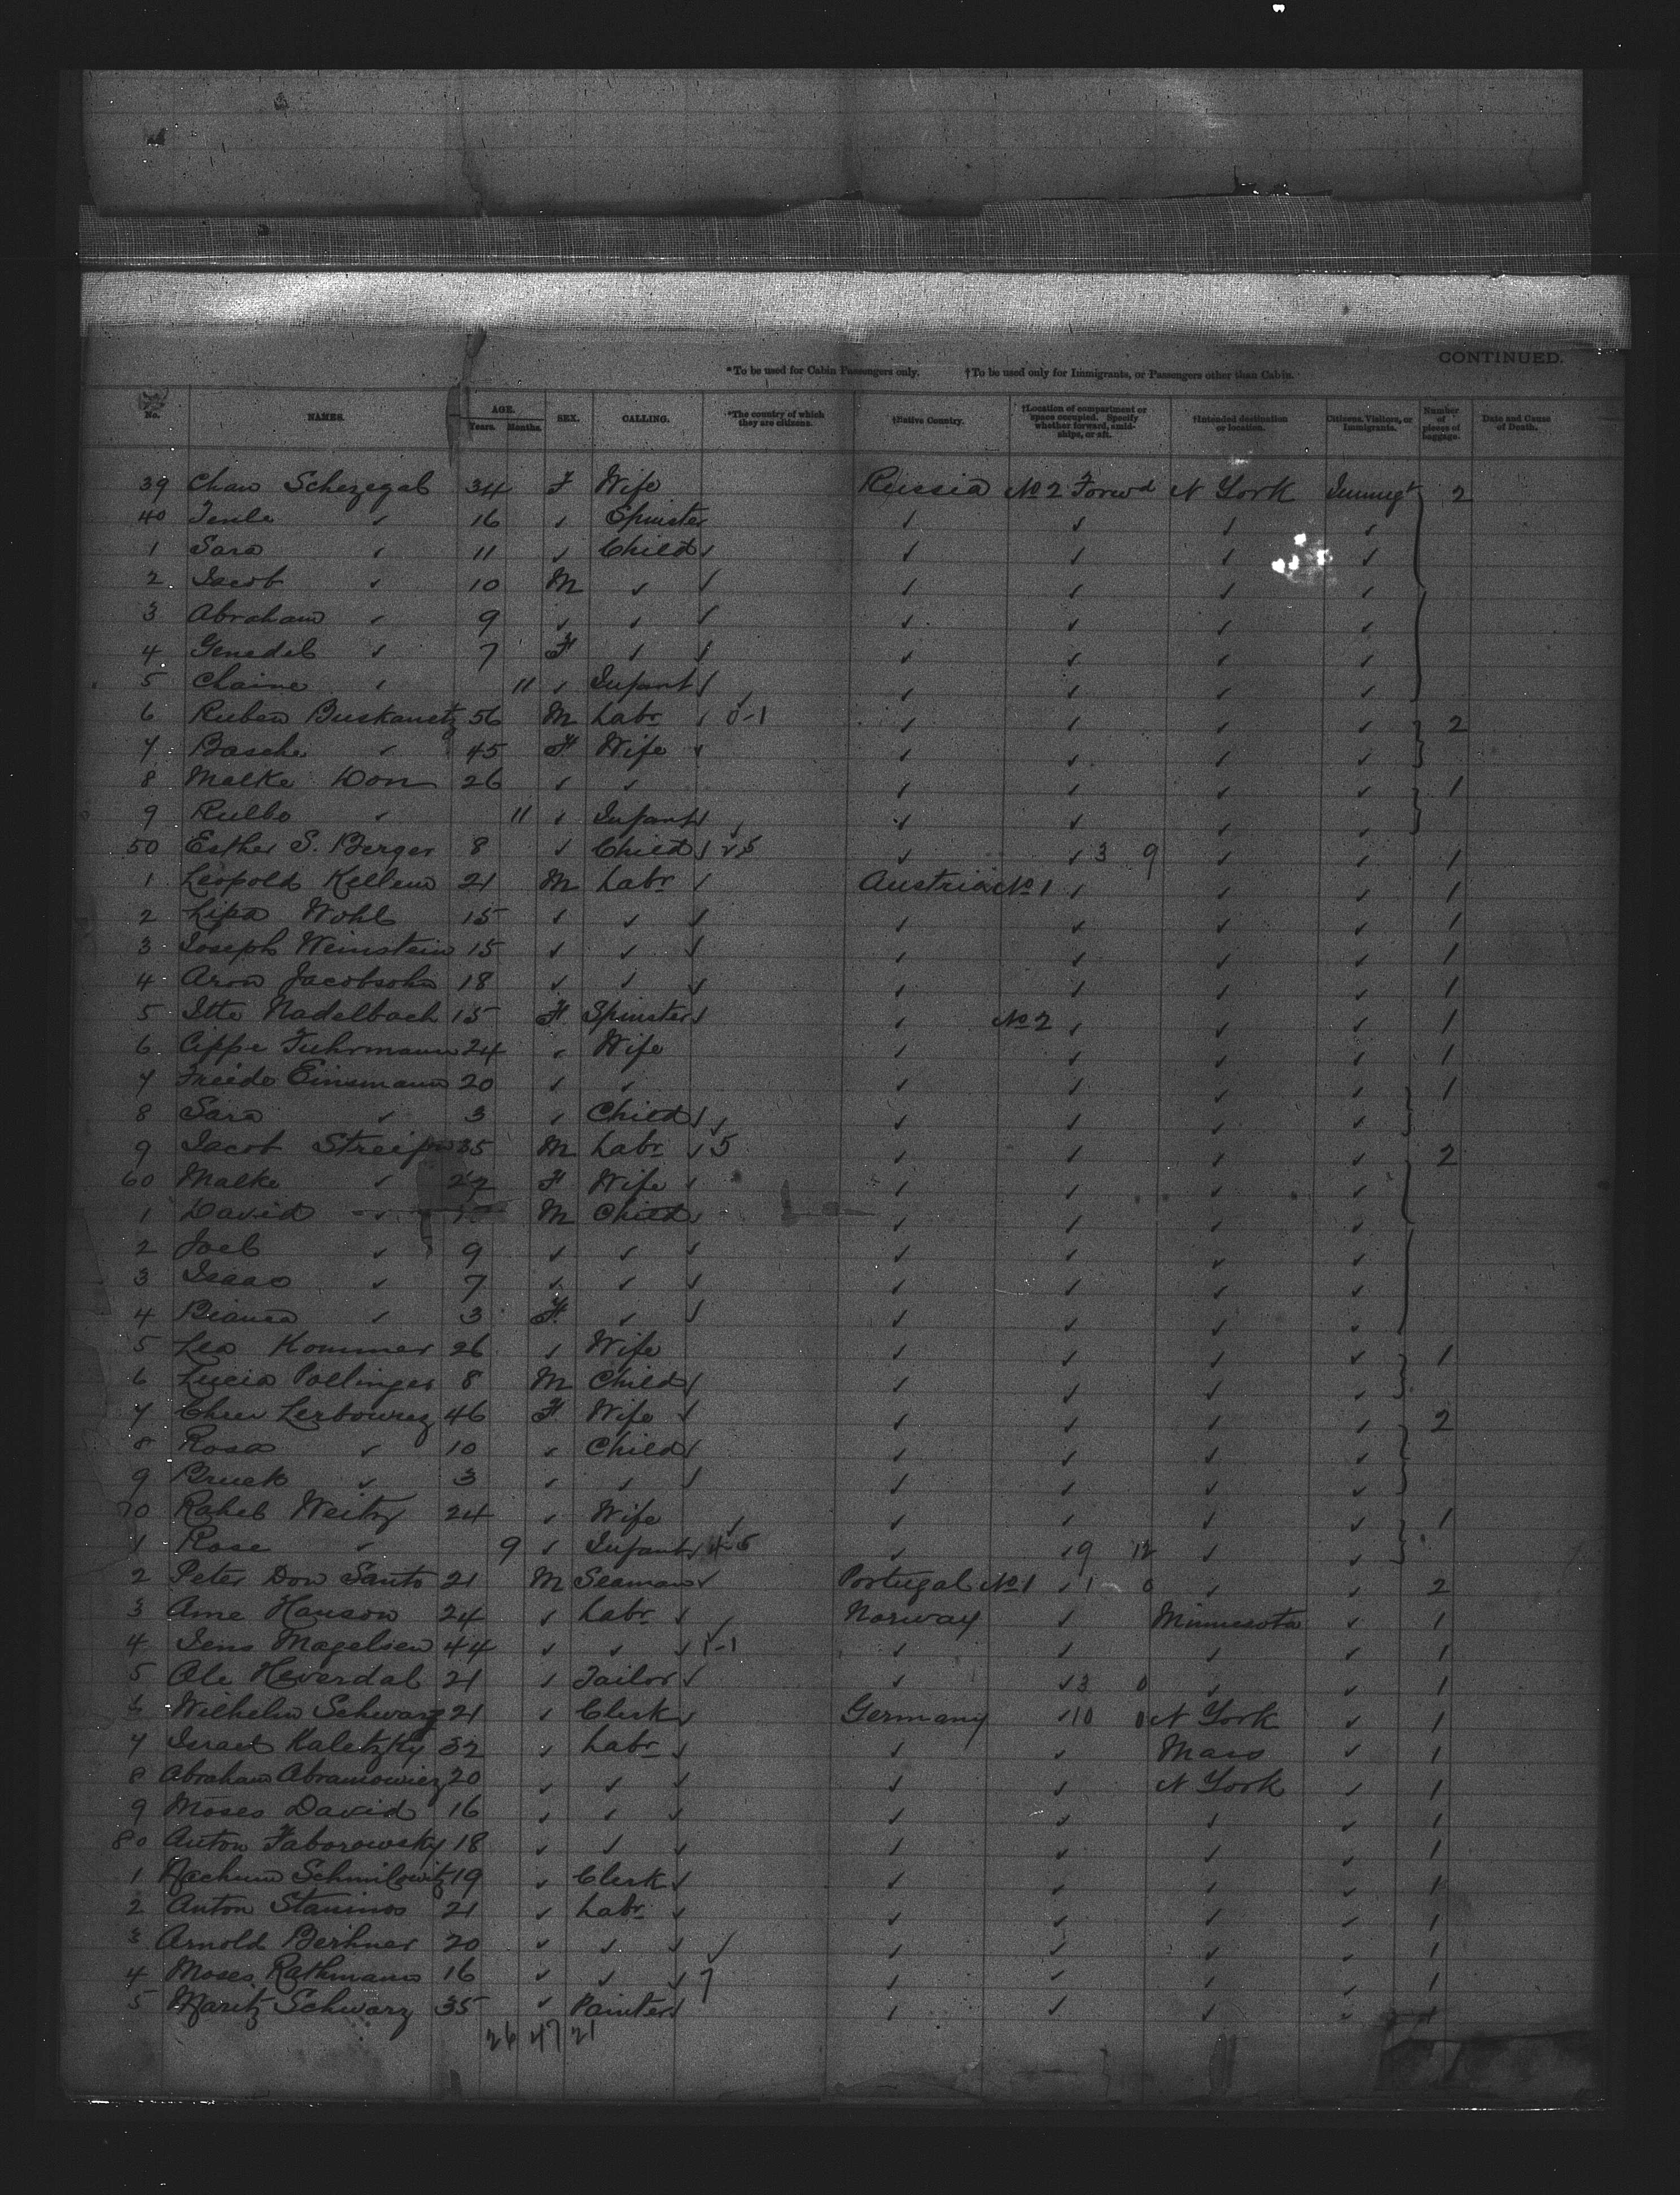 CONTINUED.
*To be used for Cabin Passengers only. †To be used only for Immigrants, or Passengers other than Cabin.
No. NAMES. AGE. Years. Months. SEX. CALLING. *The country of which they are citizens. †Native Country. †Location of compartment or space occupied. Specify whether forward, amidships, or aft. †Intended destination or location. Citizens, Visitors, or Immigrants. Number of pieces of baggage. Date and Cause of Death.
39 Chaw Schezegal 34 F Wife Russia No 2 Forwd N York Immigt 2
40 Tenle ✓ 16 ✓ Spinster ✓ ✓ ✓ ✓
1 Sara ✓ 11 ✓ Child ✓ ✓ ✓ ✓ ✓
2 Jacob ✓ 10 M ✓ ✓ ✓ ✓ ✓ ✓
3 Abraham ✓ 9 ✓ ✓ ✓ ✓ ✓ ✓ ✓
4 Genedel ✓ 7 F ✓ ✓ ✓ ✓ ✓ ✓
5 Chaine ✓ 11 ✓ Infant ✓ ✓ ✓ ✓ ✓
6 Ruben Buskanetz 56 M Labr ✓ 0-1 ✓ ✓ ✓ ✓ 2
7 Basche ✓ 45 F Wife ✓ ✓ ✓ ✓ ✓
8 Malke Don 26 ✓ ✓ ✓ ✓ ✓ ✓ 1
9 Rulbo ✓ 11 ✓ Infant ✓ ✓ ✓ ✓ ✓
50 Esther S. Berger 8 ✓ Child ✓ ✓ ✓ 3 9 ✓ ✓ 1
1 Leopold Kellem 21 M Labr ✓ Austria No 1 ✓ ✓ ✓ 1
2 Lipa Wohl 15 ✓ ✓ ✓ ✓ ✓ ✓ ✓ 1
3 Joseph Weinstein 15 ✓ ✓ ✓ ✓ ✓ ✓ ✓ 1
4 Aron Jacobsohn 18 ✓ ✓ ✓ ✓ ✓ ✓ ✓ 1
5 Itte Nadelbach 15 F Spinster ✓ ✓ No 2 ✓ ✓ ✓ 1
6 Cippe Fuhrmann 24 ✓ Wife ✓ ✓ ✓ ✓ 1
7 Freide Einsmann 20 ✓ ✓ ✓ ✓ ✓ ✓ 1
8 Sara ✓ 3 ✓ Child ✓ ✓ ✓ ✓ ✓
9 Jacob 35 M Labr ✓ 5 ✓ ✓ ✓ ✓ 2
60 Malke ✓ 27 F Wife ✓ ✓ ✓ ✓ ✓
1 David ✓ M Child ✓ ✓ ✓ ✓ ✓
2 Joel ✓ 9 ✓ ✓ ✓ ✓ ✓ ✓ ✓
3 Isaac ✓ 7 ✓ ✓ ✓ ✓ ✓ ✓ ✓
4 Bianca ✓ 3 F ✓ ✓ ✓ ✓ ✓ ✓
5 Lea Kommer 26 ✓ Wife ✓ ✓ ✓ ✓ 1
6 Lucia Pollinger 8 M Child ✓ ✓ ✓ ✓ ✓
7 Chen Lerbowrez 46 F Wife ✓ ✓ ✓ ✓ ✓ 2
8 Rosa ✓ 10 ✓ Child ✓ ✓ ✓ ✓ ✓
9 Bruck ✓ 3 ✓ ✓ ✓ ✓ ✓ ✓ ✓
70 Rahel Weitz 24 ✓ Wife ✓ ✓ ✓ ✓ 1
1 Rose ✓ 9 ✓ Infant ✓ 4-5 ✓ ✓ 9 12 ✓ ✓
2 Peter Don Santo 21 M Seaman ✓ Portugal No 1 ✓ 1 0 ✓ ✓ 2
3 Arne Hanson 24 ✓ Labr ✓ Norway ✓ Minnesota ✓ 1
4 Jens Magelsen 44 ✓ ✓ ✓ 1-1 ✓ ✓ ✓ ✓ 1
5 Ole Heverdal 21 ✓ Tailor ✓ ✓ ✓ 3 0 ✓ ✓ 1
6 Wilhelm Schwarz 21 ✓ Clerk ✓ Germany ✓ 10 0 N York ✓ 1
7 Israel Kaletzky 32 ✓ Labr ✓ ✓ ✓ Mass ✓ 1
8 Abraham Abramowicz 20 ✓ ✓ ✓ ✓ ✓ N York ✓ 1
9 Moses David 16 ✓ ✓ ✓ ✓ ✓ ✓ ✓ 1
80 Anton Faborowsky 18 ✓ ✓ ✓ ✓ ✓ ✓ ✓ 1
1 Nachum Schmilowitz 19 ✓ Clerk ✓ ✓ ✓ ✓ ✓ 1
2 Anton Staninos 21 ✓ Labr ✓ ✓ ✓ ✓ ✓ 1
3 Arnold Berhner 20 ✓ ✓ ✓ ✓ ✓ ✓ ✓ 1
4 Moses Rathmann 16 ✓ ✓ ✓ 7 ✓ ✓ ✓ ✓ 1
5 Moritz Schwarz 35 ✓ Painter ✓ ✓ ✓ ✓ ✓ 1
26 47 21